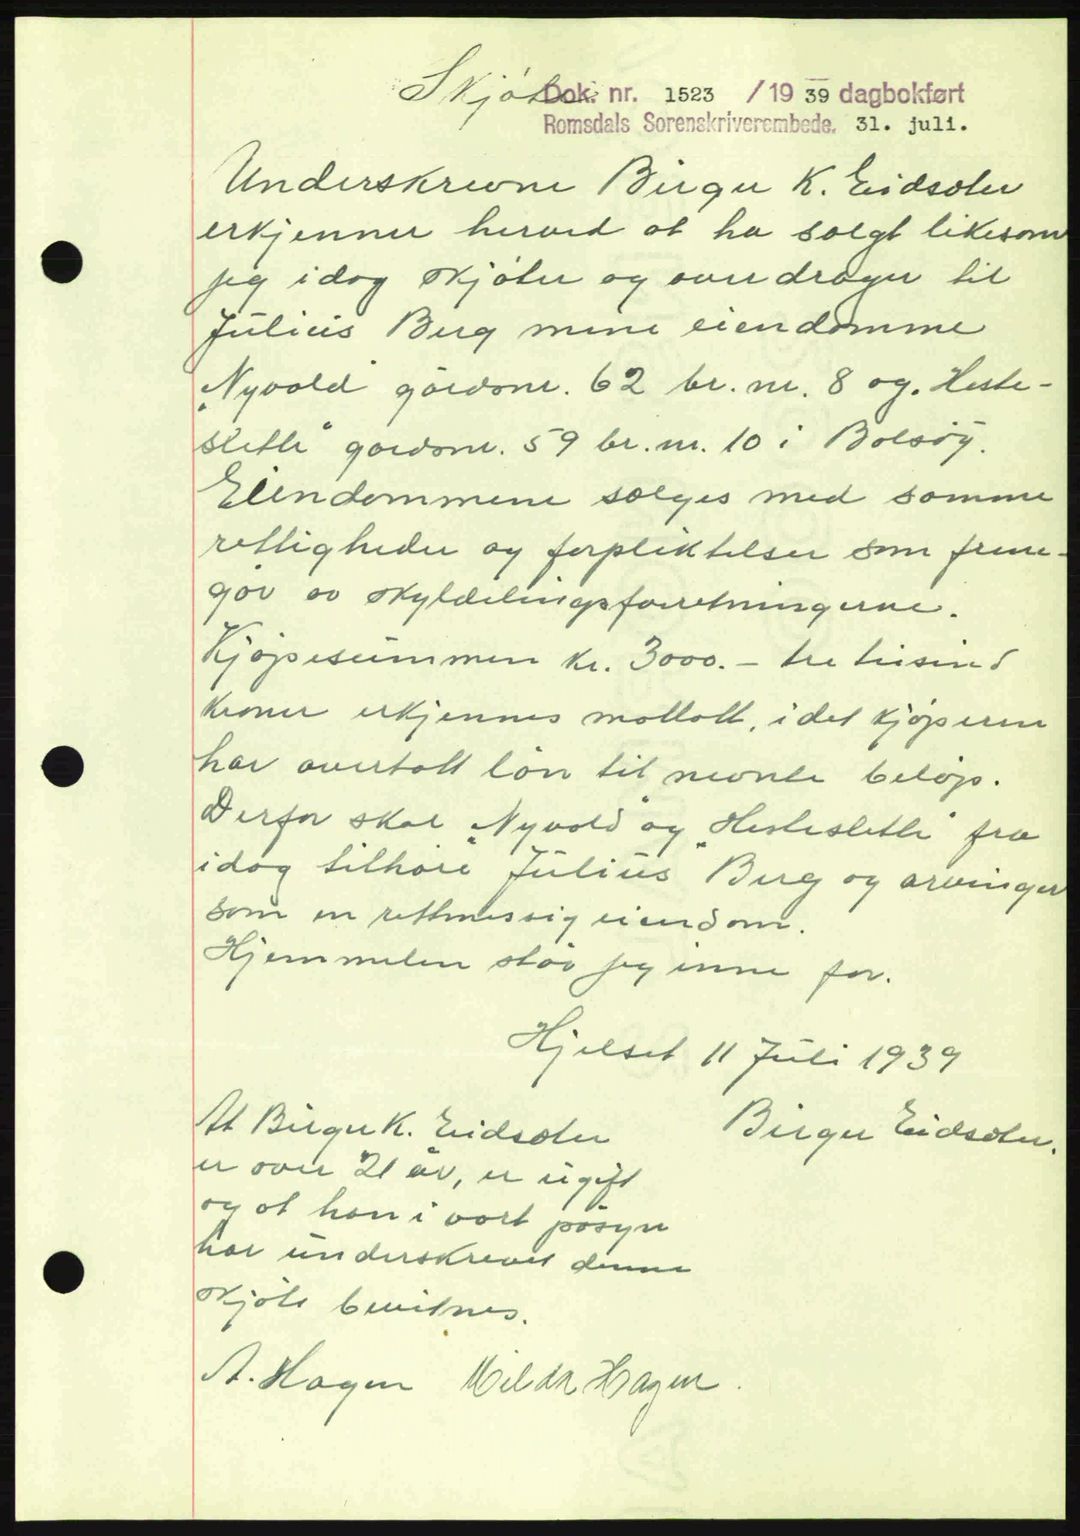 Skjøte
Dok. nr. 1523 / 1939 dagbokført
Romsdals Sorenskriverembede. 31. juli.
Underskrevne Birger K. Eidsæter
erkjenner herved at ha solgt likesom
jeg idag skjøter og overdrager til
Julius Berg mine eiendomme
„Nyvold" gårdsnr. 62 br. nr. 8 og „Heste-
sletti" gårdsnr. 59 br. nr. 10 i Bolsøy.
Eiendommene sælges med samme
rettigheder og forpliktelser som frem-
går av skyldelingsforretningerne.
Kjøpesummen kr. 3000.- tre tusind
kroner erkjennes mottatt, idet kjøperen
har overtatt lån til nevnte beløp.
Derfor skal „Nyvold" og „Hestesletti" fra
idag tilhøre Julius Berg og arvinger
som en rettmessig eiendom.
Hjemmelen står jeg inne for.
Hjelset 11 Juli 1939
Birger Eidsæter.
At Birger K. Eidsæter
er over 21 år, er ugift
og at han i vort påsyn
har underskrevet denne
skjøte bevitnes.
A. Hagen Milda Hagen.